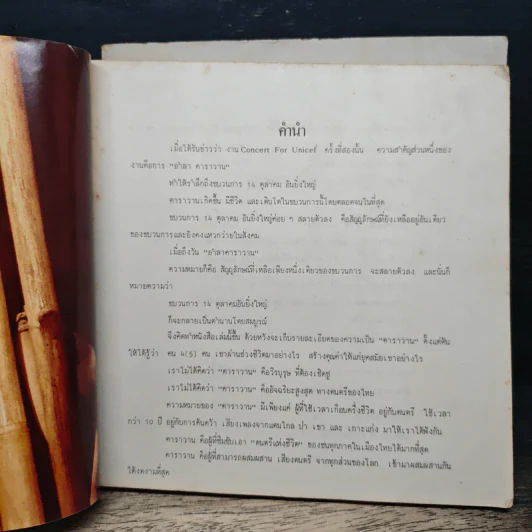 คำนำ
เมื่อได้รับข่าวว่า งาน Concert For Unicef ครั้งที่สองนั้น ความสำคัญส่วนหนึ่งของ
งานคือการ "อำลา คาราวาน"
ทำให้รำลึกถึงขบวนการ 14 ตุลาคม อันยิ่งใหญ่
คาราวานเกิดขึ้น มีชีวิต และเติบโตในขบวนการนี้โดยตลอดจนในที่สุด
ขบวนการ 14 ตุลาคม อันยิ่งใหญ่ค่อย ๆ สลายตัวลง คือสัญลักษณ์ที่ยังเหลืออยู่อันเดียว
ของขบวนการและยังคงแหวกว่ายในสังคม
เมื่อถึงวัน "อำลาคาราวาน"
ความหมายก็คือ สัญลักษณ์ที่เหลือเพียงหนึ่งเดียวของขบวนการ จะสลายตัวลง และนั่นก็
หมายความว่า
ขบวนการ 14 ตุลาคมอันยิ่งใหญ่
ก็จะกลายเป็นตำนานโดยสมบูรณ์
จึงคิดทำหนังสือเล่มนี้ขึ้น ด้วยหวังจะเก็บรายละเอียดของความเป็น "คาราวาน" ตั้งแต่ต้น
ให้ได้รู้ว่า คน 4(5) คน เขาผ่านช่วงชีวิตมาอย่างไร สร้างคุณค่าให้แก่ยุคสมัยเขาอย่างไร
เราไม่ได้คิดว่า "คาราวาน" คือวีรบุรุษ ที่ต้องเชิดชู
เราไม่ได้คิดว่า "คาราวาน" คืออัจฉริยะสูงสุด ทางดนตรีของไทย
ความหมายของ "คาราวาน" มีเพียงแค่ ผู้ที่ใช้เวลาเกือบครึ่งชีวิต อยู่กับดนตรี ใช้เวลา
กว่า 10 ปี อยู่กับการค้นคว้า เสียงเพลงจากแดนไกล ป่า เขา และ เกาะแก่ง มาให้เราได้ฟังกัน
คาราวาน คือผู้ที่ซึมซับเอา "ดนตรีแห่งชีวิต" ของชนทุกภาคในเมืองไทยได้มากที่สุด
คาราวาน คือผู้ที่สามารถผสมผสาน เสียงดนตรี จากทุกส่วนของโลก เข้ามาผสมผสานกัน
ได้งดงามที่สุด